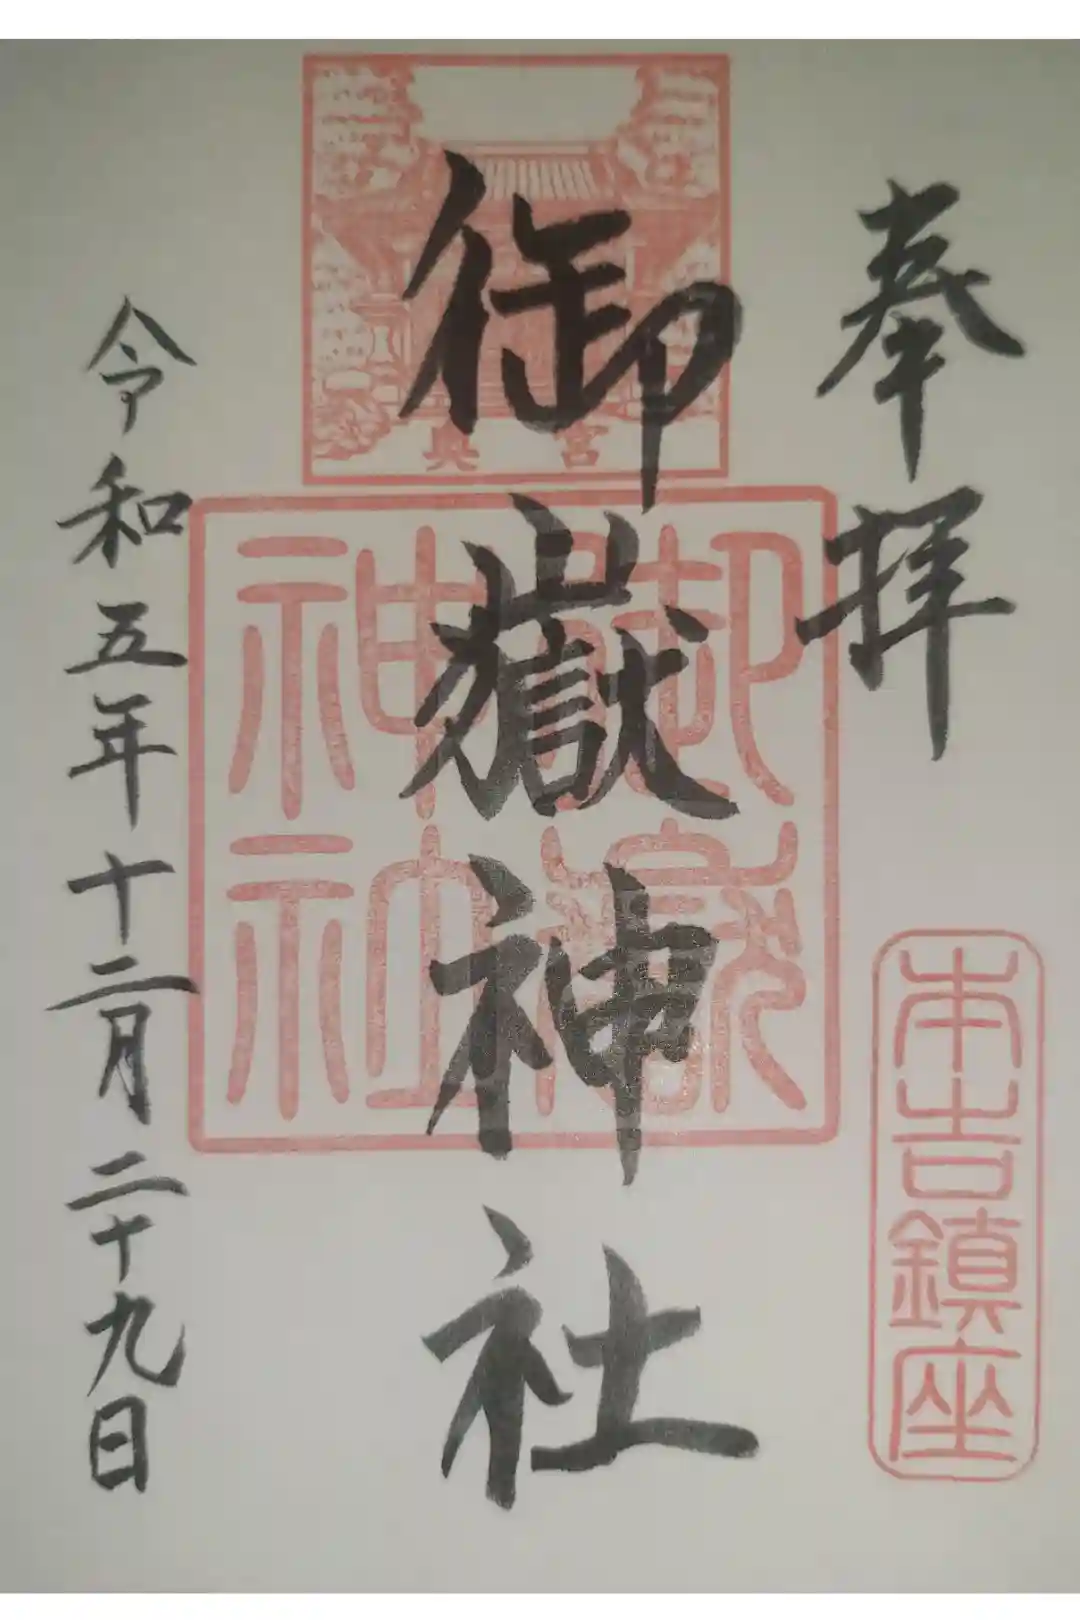 奉拝
本吉鎮座
御嶽神社
奥宮
御嶽
神社
令和五年十二月二十九日